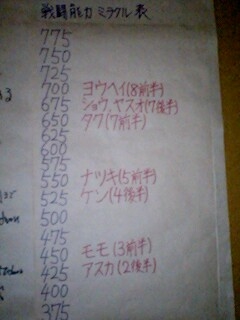 戦闘能力ミラクル表
775
750
725
700 ヨウヘイ(8前半)
675 ショウ、ヤスオ(7後半)
650 タワ(7前半)
625
600
575
550 ナツキ(5前半)
525 ケン(4後半)
500
475
450 モモ(3前半)
425 アスカ(2後半)
400
375